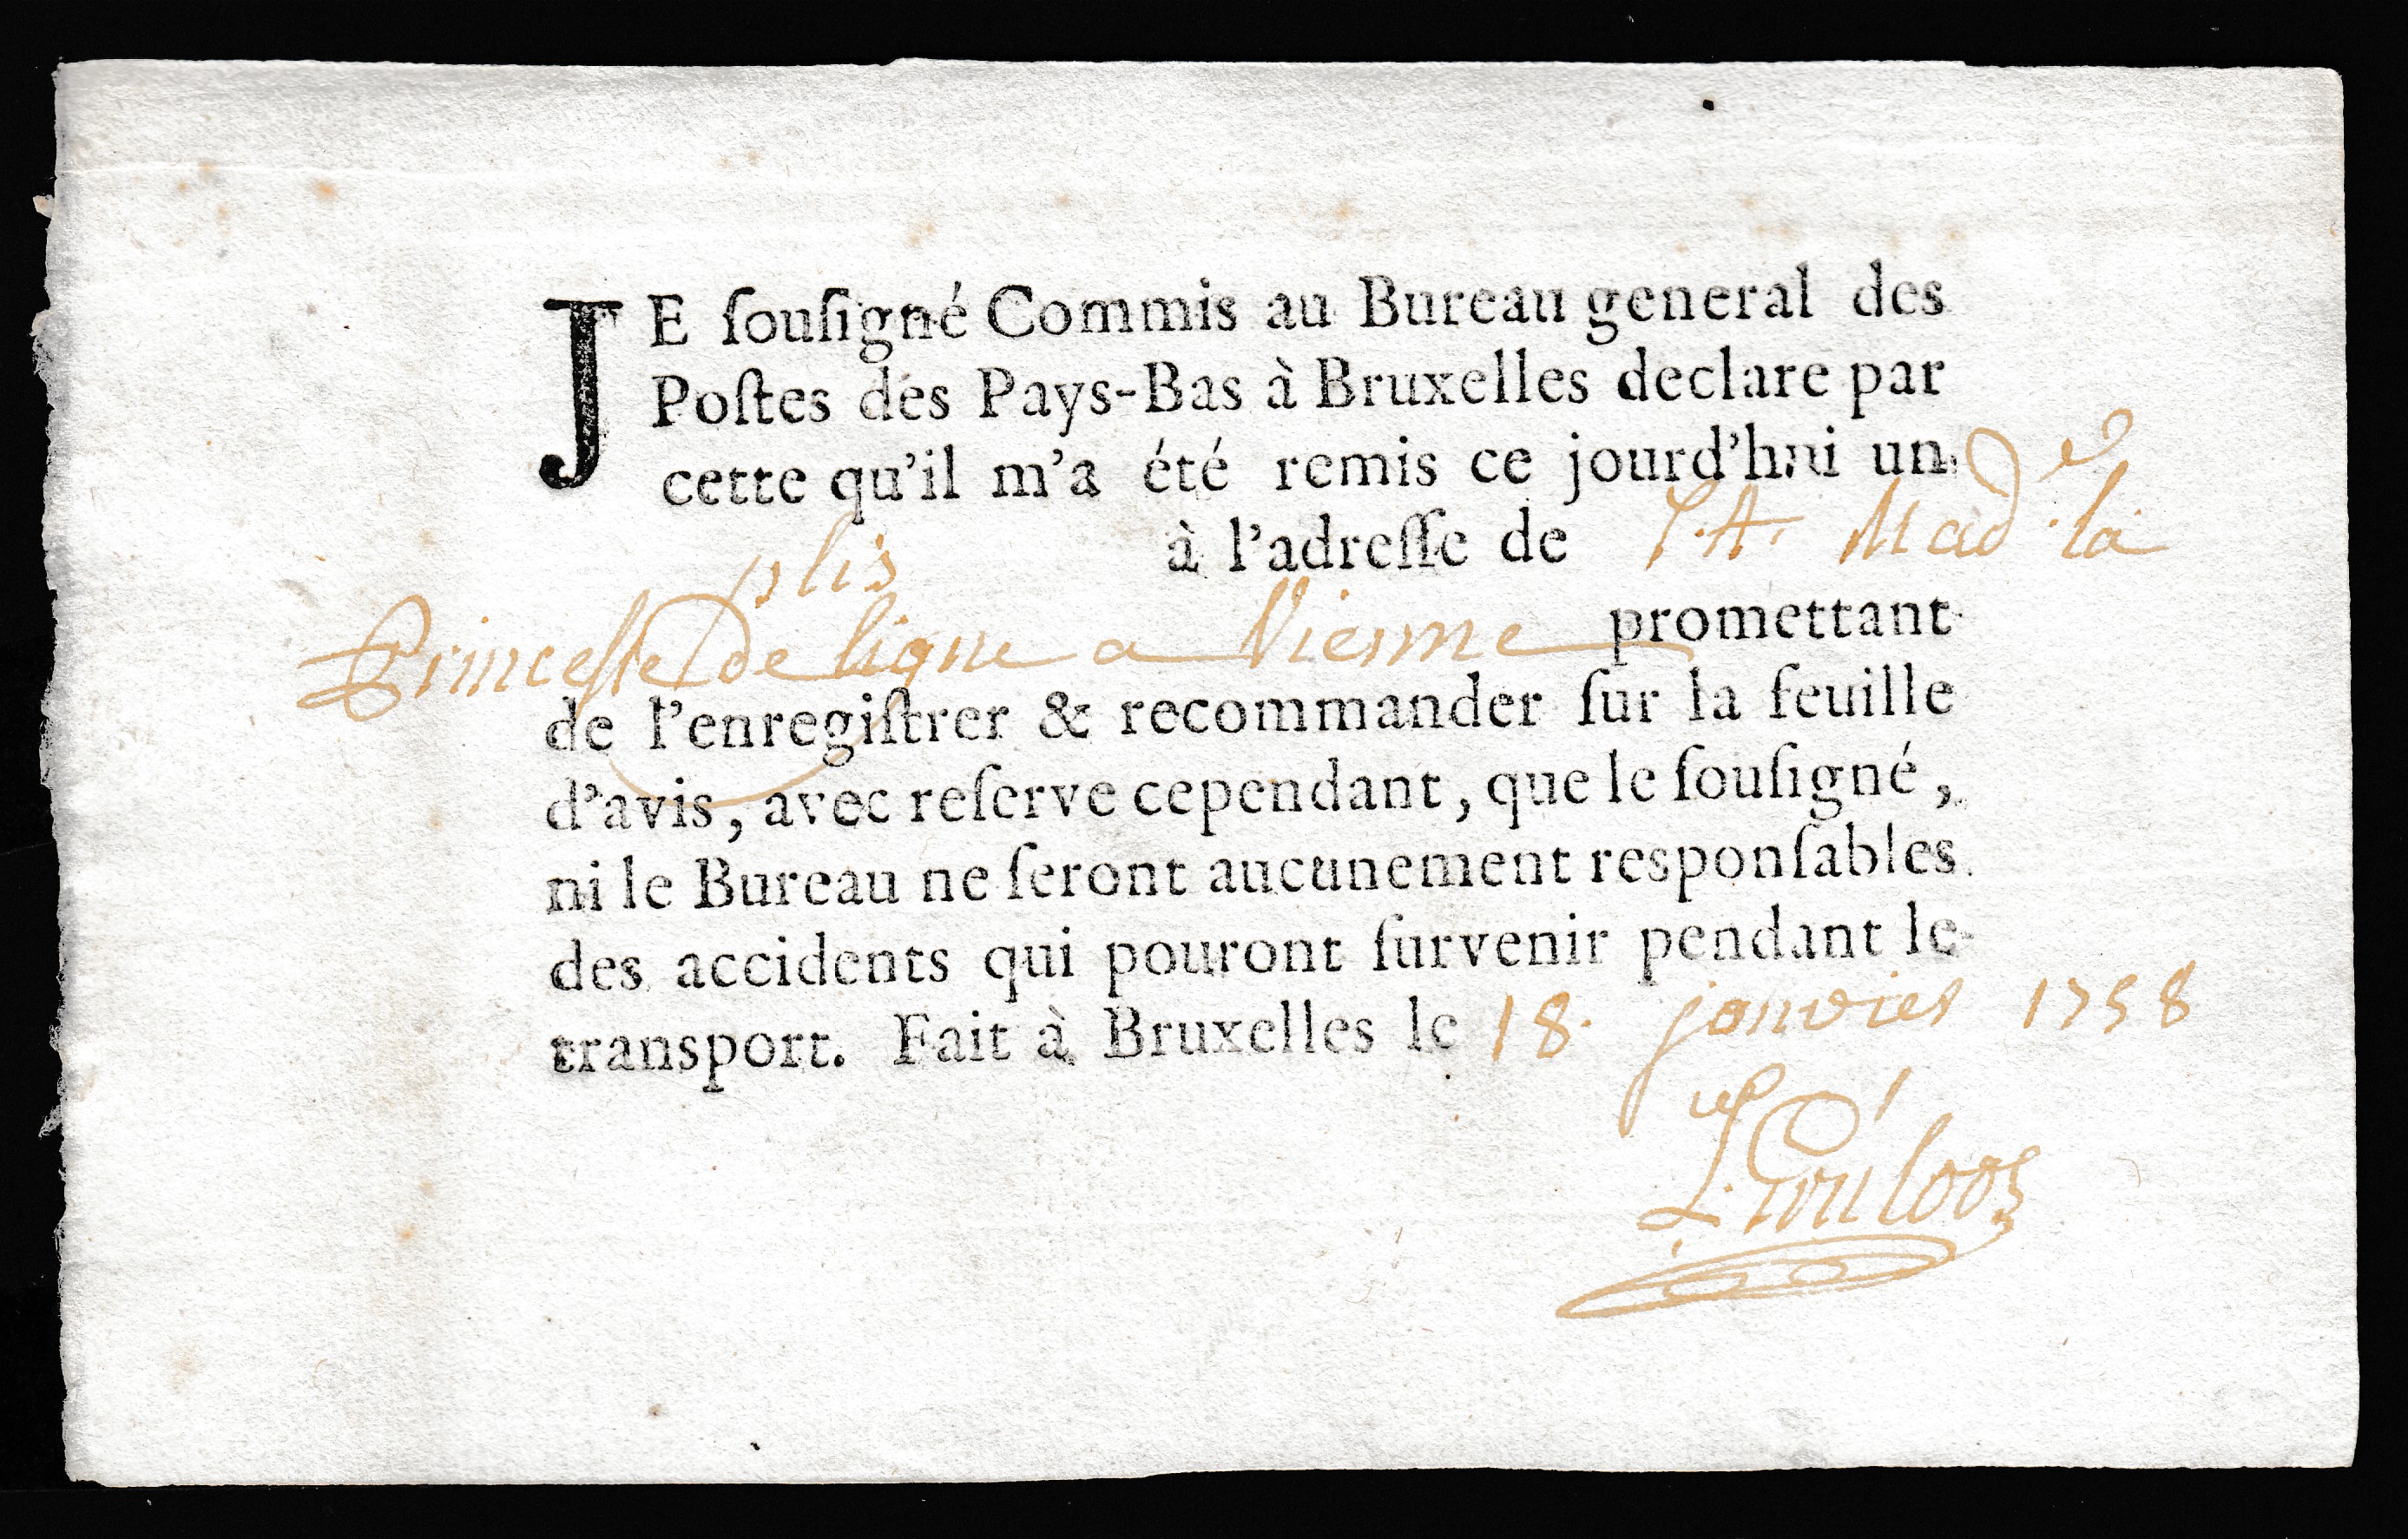 JE ſouſigné Commis au Bureau general des
Poſtes des Pays-Bas à Bruxelles declare par
cette qu'il m'a été remis ce jourd'hui un
plis à l'adreſſe de S.A. Mad.e la
Princeſſe De ligne a Vienne promettant
de l'enregiſtrer & recommander ſur la feuille
d'avis, avec reſerve cependant, que le ſouſigné,
ni le Bureau ne ſeront aucunement responſables
des accidents qui pouront ſurvenir pendant le
transport. Fait à Bruxelles le 18. janvier 1758